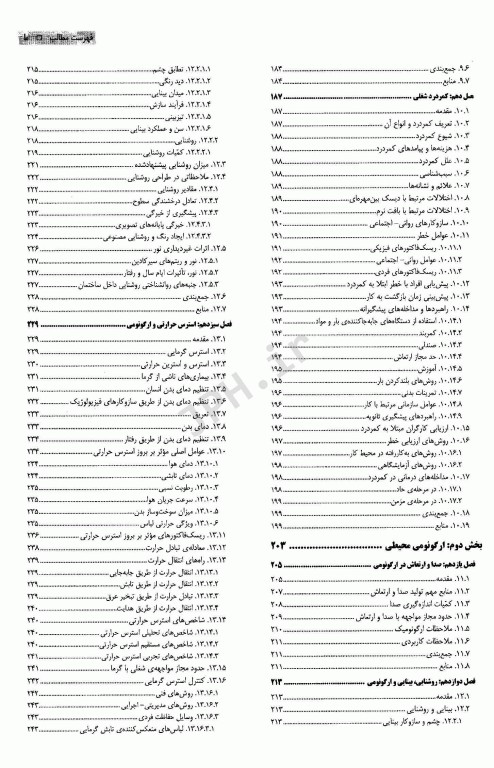 فهرست مطالب
۹.۶. جمع‌بندی ۱۸۳
۹.۷. منابع ۱۸۴
فصل دهم: کمردرد شغلی ۱۸۷
۱۰.۱. مقدمه ۱۸۷
۱۰.۲. تعریف کمردرد و انواع آن ۱۸۷
۱۰.۳. شیوع کمردرد ۱۸۸
۱۰.۴. هزینه‌ها و پیامدهای کمردرد ۱۸۸
۱۰.۵. علل کمردرد ۱۸۸
۱۰.۶. سبب‌شناسی ۱۸۸
۱۰.۷. علائم و نشانه‌ها ۱۸۹
۱۰.۸. اختلالات مرتبط با دیسک بین‌مهره‌ای ۱۸۹
۱۰.۹. اختلالات مرتبط با بافت نرم ۱۹۰
۱۰.۱۰. سازوکارهای روانی- اجتماعی ۱۹۰
۱۰.۱۱. عوامل خطر ۱۹۱
۱۰.۱۱.۱. ریسک‌فاکتورهای فیزیکی ۱۹۱
۱۰.۱۱.۲. عوامل روانی- اجتماعی ۱۹۱
۱۰.۱۱.۳. ریسک‌فاکتورهای فردی ۱۹۲
۱۰.۱۲. پیش‌یابی افراد با خطر ابتلا به کمردرد ۱۹۳
۱۰.۱۳. پیش‌بینی زمان بازگشت به کار ۱۹۳
۱۰.۱۴. راهبردها و مداخله‌های پیشگیرانه ۱۹۳
۱۰.۱۴.۱. استفاده از دستگاه‌های جابه‌جاکننده‌ی بار و مواد ۱۹۴
۱۰.۱۴.۲. کمربند ۱۹۴
۱۰.۱۴.۳. صندلی ۱۹۴
۱۰.۱۴.۴. حد مجاز ارتعاش ۱۹۴
۱۰.۱۴.۵. آموزش ۱۹۵
۱۰.۱۴.۶. روش‌های بلندکردن بار ۱۹۵
۱۰.۱۴.۷. تمرینات بدنی ۱۹۶
۱۰.۱۴.۸. عوامل سازمانی مرتبط با کار ۱۹۶
۱۰.۱۴.۹. راهبردهای پیشگیری ثانویه ۱۹۶
۱۰.۱۵. ارزیابی کارگران مبتلا به کمردرد ۱۹۶
۱۰.۱۶. روش‌های ارزیابی خطر ۱۹۷
۱۰.۱۶.۱. روش‌های به‌کاررفته در محیط کار ۱۹۷
۱۰.۱۶.۲. روش‌های آزمایشگاهی ۱۹۸
۱۰.۱۷. مداخله‌های درمانی در کمردرد ۱۹۸
۱۰.۱۷.۱. در مرحله‌ی حاد ۱۹۸
۱۰.۱۷.۲. در مرحله‌ی مزمن ۱۹۹
۱۰.۱۸. جمع‌بندی ۱۹۹
۱۰.۱۹. منابع ۱۹۹
بخش دوم: ارگونومی محیطی ۲۰۳
فصل یازدهم: صدا و ارتعاش در ارگونومی ۲۰۵
۱۱.۱. مقدمه ۲۰۵
۱۱.۲. منابع مهم تولید صدا و ارتعاش ۲۰۷
۱۱.۳. کمیّات اندازه‌گیری صدا ۲۰۸
۱۱.۴. حدود مجاز مواجهه با صدا و ارتعاش ۲۰۹
۱۱.۵. ملاحظات ارگونومیک ۲۱۰
۱۱.۶. ملاحظات کاربردی ۲۱۱
۱۱.۷. جمع‌بندی ۲۱۱
۱۱.۸. منابع ۲۱۱
فصل دوازدهم: روشنایی، بینایی و ارگونومی ۲۱۳
۱۲.۱. مقدمه ۲۱۳
۱۲.۲. بینایی و روشنایی ۲۱۳
۱۲.۲.۱. چشم و سازوکار بینایی ۲۱۳
۱۲.۲.۱.۱. تطابق چشم ۲۱۵
۱۲.۲.۱.۲. دید رنگی ۲۱۵
۱۲.۲.۱.۳. میدان بینایی ۲۱۶
۱۲.۲.۱.۴. فرآیند سازش ۲۱۶
۱۲.۲.۱.۵. تیزبینی ۲۱۶
۱۲.۲.۱.۶. سن و عملکرد بینایی ۲۱۸
۱۲.۲.۲. روشنایی ۲۱۸
۱۲.۲.۲.۱. کمیّات روشنایی ۲۱۹
۱۲.۳. میزان روشنایی پیشنهادشده ۲۲۱
۱۲.۴. ملاحظاتی در طراحی روشنایی ۲۲۲
۱۲.۴.۱. مقادیر روشنایی ۲۲۲
۱۲.۴.۲. تعادل درخشندگی سطوح ۲۲۲
۱۲.۴.۳. پیشگیری از خیرگی ۲۲۳
۱۲.۴.۳.۱. خیرگی پایانه‌های تصویری ۲۲۳
۱۲.۴.۴. ایجاد رنگ و روشنایی مصنوعی ۲۲۴
۱۲.۵. اثرات غیردیداری نور ۲۲۶
۱۲.۵.۱. نور و ریتم‌های سیرکادین ۲۲۶
۱۲.۵.۲. نور، تأثیرات ایام سال و رفتار ۲۲۷
۱۲.۵.۳. جنبه‌های روانشناختی روشنایی داخل ساختمان ۲۲۷
۱۲.۶. جمع‌بندی ۲۲۸
۱۲.۷. منابع ۲۲۸
فصل سیزدهم: استرس حرارتی و ارگونومی ۲۲۹
۱۳.۱. مقدمه ۲۲۹
۱۳.۲. استرس گرمایی ۲۲۹
۱۳.۳. استرس و استرین حرارتی ۲۳۰
۱۳.۴. بیماری‌های ناشی از گرما ۲۳۰
۱۳.۵. تنظیم دمای بدن انسان ۲۳۱
۱۳.۶. تنظیم دمای بدن از طریق سازوکارهای فیزیولوژیک ۲۳۲
۱۳.۷. تعریق ۲۳۳
۱۳.۸. دمای بدن ۲۳۳
۱۳.۹. تنظیم دمای بدن از طریق رفتار ۲۳۳
۱۳.۱۰. عوامل اصلی مؤثر بر بروز استرس حرارتی ۲۳۴
۱۳.۱۰.۱. دمای هوا ۲۳۴
۱۳.۱۰.۲. دمای تابشی ۲۳۴
۱۳.۱۰.۳. رطوبت نسبی ۲۳۵
۱۳.۱۰.۴. سرعت جریان هوا ۲۳۵
۱۳.۱۰.۵. میزان سوخت‌وساز بدن ۲۳۵
۱۳.۱۰.۶. ویژگی حرارتی لباس ۲۳۶
۱۳.۱۱. ریسک‌فاکتورهای مؤثر بر بروز استرس حرارتی ۲۳۶
۱۳.۱۲. معادله‌ی تبادل حرارت ۲۳۸
۱۳.۱۳. راه‌های انتقال حرارت ۲۳۹
۱۳.۱۳.۱. انتقال حرارت از طریق جابه‌جایی ۲۳۹
۱۳.۱۳.۲. انتقال حرارت از طریق تابش ۲۳۹
۱۳.۱۳.۳. تبادل حرارت از طریق تبخیر عرق ۲۳۹
۱۳.۱۳.۴. انتقال حرارت از طریق هدایت ۲۴۰
۱۳.۱۴. شاخص‌های استرس حرارتی ۲۴۰
۱۳.۱۴.۱. شاخص‌های تحلیلی استرس حرارتی ۲۴۰
۱۳.۱۴.۲. شاخص‌های مستقیم استرس حرارتی ۲۴۰
۱۳.۱۴.۳. شاخص‌های تجربی استرس حرارتی ۲۴۱
۱۳.۱۵. حدود مجاز مواجهه‌ی شغلی با گرما ۲۴۱
۱۳.۱۶. کنترل استرس گرمایی ۲۴۲
۱۳.۱۶.۱. روش‌های فنی ۲۴۲
۱۳.۱۶.۲. روش‌های مدیریتی- اجرایی ۲۴۳
۱۳.۱۶.۳. وسایل حفاظت فردی ۲۴۳
۱۳.۱۶.۳.۱. لباس‌های منعکس‌کننده‌ی تابش گرمایی ۲۴۳